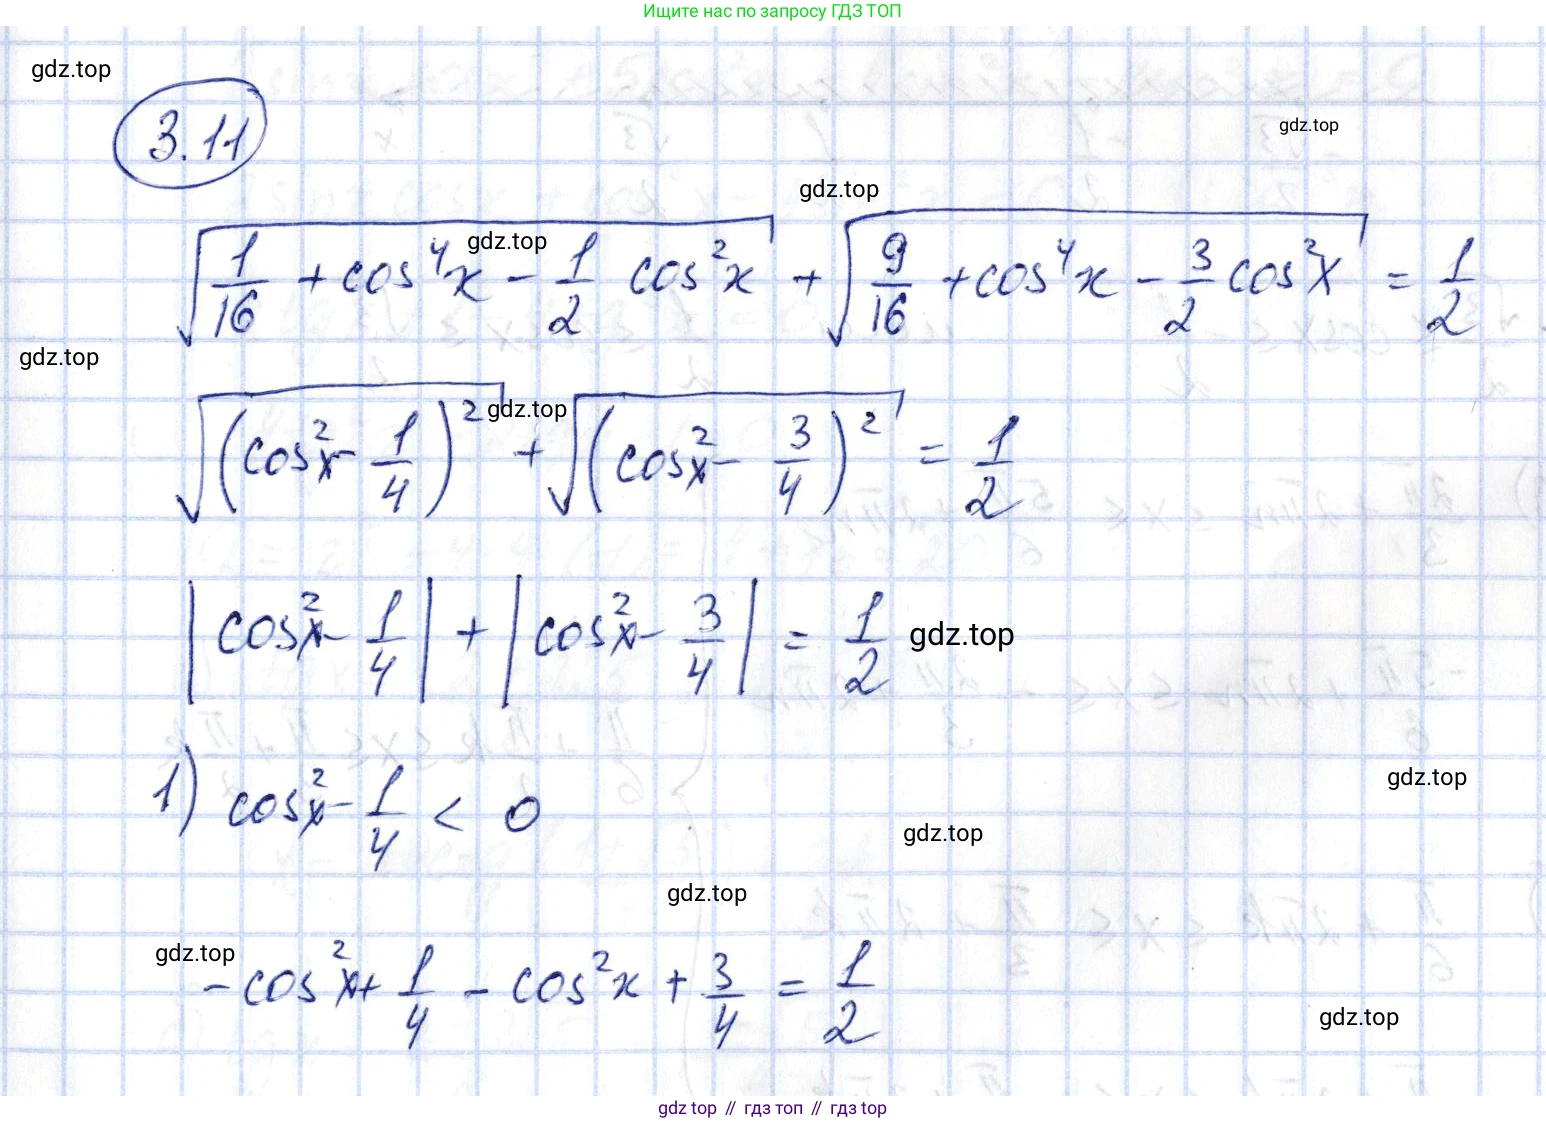 Ищите нас по запросу ГДЗ ТОП
gdz.top
3.11
gdz.top
gdz.top
√(1/16 + cos⁴x - 1/2 cos²x) + √(9/16 + cos⁴x - 3/2 cos²x) = 1/2
gdz.top
gdz.top
√((cos²x - 1/4)²) + √((cos²x - 3/4)²) = 1/2
gdz.top
|cos²x - 1/4| + |cos²x - 3/4| = 1/2
gdz.top
1) cos²x - 1/4 < 0
gdz.top
gdz.top
gdz.top
gdz.top
- cos²x + 1/4 - cos²x + 3/4 = 1/2
gdz.top
gdz top // гдз топ // gdz top